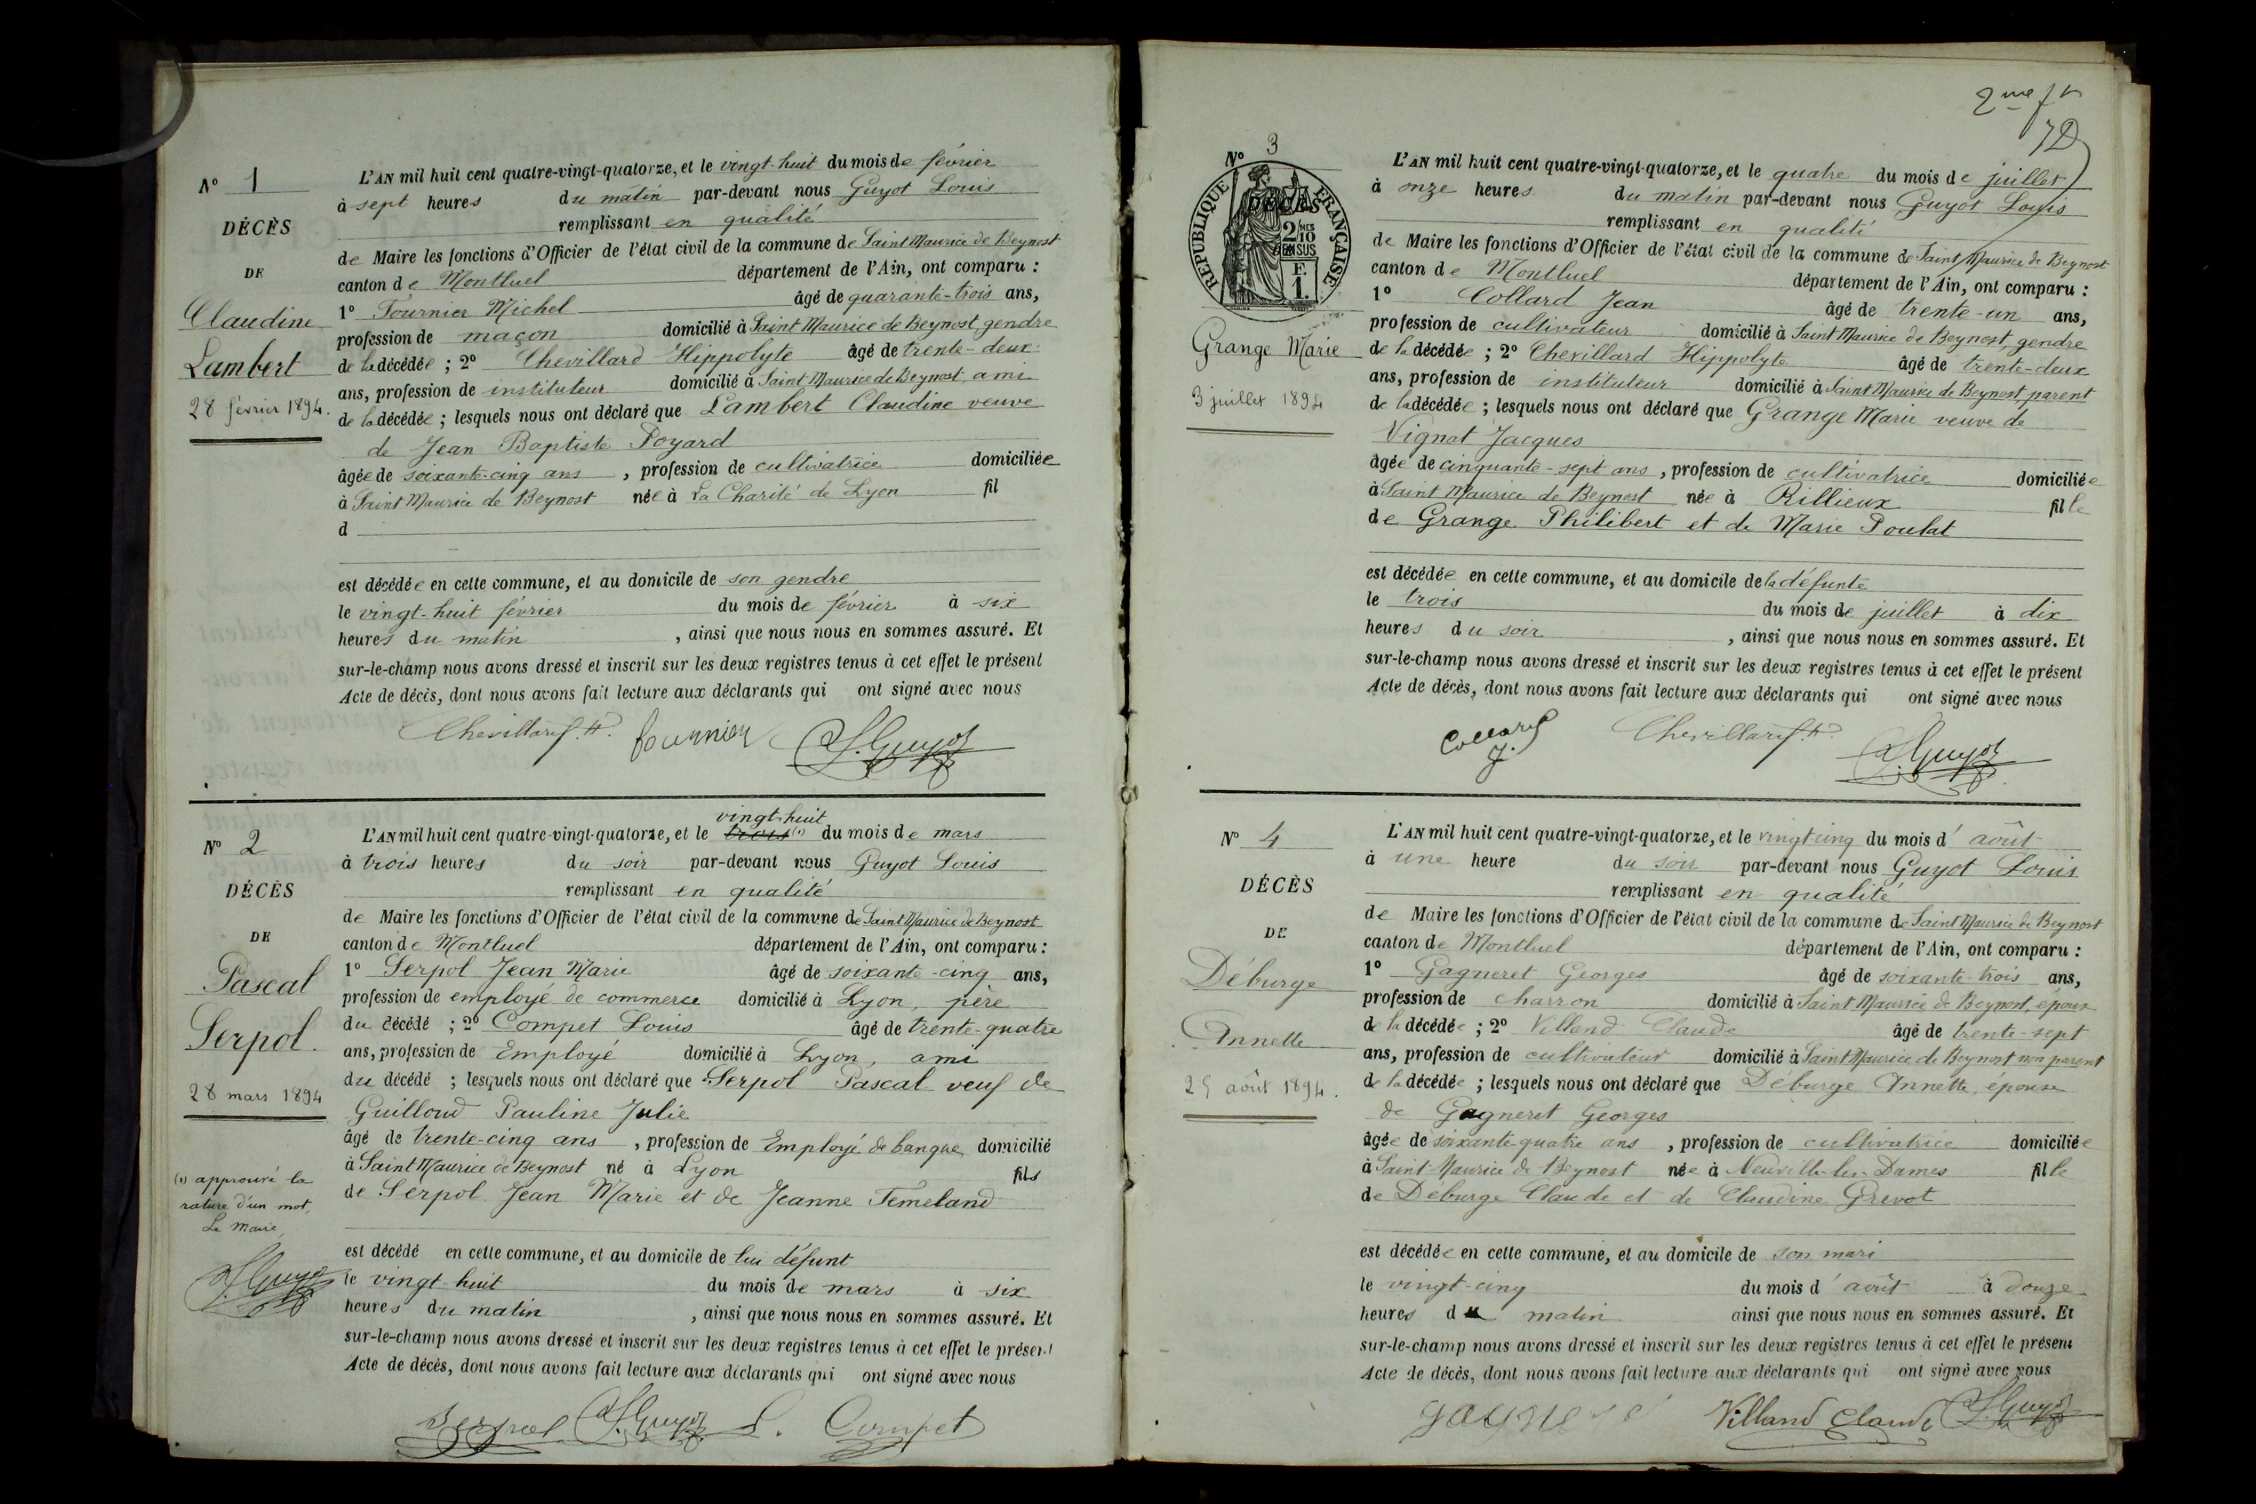 N° 1
DÉCÈS
DE
Claudine
Lambert
28 février 1894.
L'AN mil huit cent quatre-vingt-quatorze, et le vingt-huit du mois de février
à sept heures du matin par-devant nous Guyot Louis
remplissant en qualité
de Maire les fonctions d'Officier de l'état civil de la commune de Saint Maurice de Beynost
canton de Montluel département de l'Ain, ont comparu :
1° Fournier Michel âgé de quarante-trois ans,
profession de maçon domicilié à Saint Maurice de Beynost, gendre
de la décédée ; 2° Chevillard Hippolyte âgé de trente-deux
ans, profession de instituteur domicilié à Saint Maurice de Beynost, ami
de la décédée ; lesquels nous ont déclaré que Lambert Claudine veuve
de Jean Baptiste Poyard
âgée de soixante-cinq ans , profession de cultivatrice domiciliée
à Saint Maurice de Beynost née à La Charité de Lyon fil
d
est décédée en cette commune, et au domicile de son gendre
le vingt-huit février du mois de février à six
heures du matin , ainsi que nous nous en sommes assuré. Et
sur-le-champ nous avons dressé et inscrit sur les deux registres tenus à cet effet le présent
Acte de décès, dont nous avons fait lecture aux déclarants qui ont signé avec nous
Chevillard H. fournier L. Guyot
N° 2
DÉCÈS
DE
Pascal
Serpol.
28 mars 1894
(1) approuvé la
rature d'un mot,
Le Maire,
L. Guyot
vingt-huit
L'AN mil huit cent quatre-vingt-quatorze, et le trois (1) du mois de mars
à trois heures du soir par-devant nous Guyot Louis
remplissant en qualité
de Maire les fonctions d'Officier de l'état civil de la commune de Saint Maurice de Beynost
canton de Montluel département de l'Ain, ont comparu :
1° Serpol Jean Marie âgé de soixante-cinq ans,
profession de employé de commerce domicilié à Lyon, père
du décédé ; 2° Compet Louis âgé de trente-quatre
ans, profession de Employé domicilié à Lyon, ami
du décédé ; lesquels nous ont déclaré que Serpol Pascal veuf de
Guilloud Pauline Julie
âgé de trente-cinq ans , profession de Employé de banque domicilié
à Saint Maurice de Beynost né à Lyon fils
de Serpol Jean Marie et de Jeanne Femeland
est décédé en cette commune, et au domicile de lui défunt
le vingt-huit du mois de mars à six
heures du matin , ainsi que nous nous en sommes assuré. Et
sur-le-champ nous avons dressé et inscrit sur les deux registres tenus à cet effet le présent
Acte de décès, dont nous avons fait lecture aux déclarants qui ont signé avec nous
Serpol L. Guyot L. Compet
2me
N° 3
DÉCÈS
RÉPUBLIQUE FRANÇAISE
2/10 EN SUS
F.
1.
Grange Marie
3 juillet 1894
L'AN mil huit cent quatre-vingt-quatorze, et le quatre du mois de juillet
à onze heures du matin par-devant nous Guyot Louis
remplissant en qualité
de Maire les fonctions d'Officier de l'état civil de la commune de Saint Maurice de Beynost
canton de Montluel département de l'Ain, ont comparu :
1° Collard Jean âgé de trente-un ans,
profession de cultivateur domicilié à Saint Maurice de Beynost, gendre
de la décédée ; 2° Chevillard Hippolyte âgé de trente-deux
ans, profession de instituteur domicilié à Saint Maurice de Beynost parent
de la décédée ; lesquels nous ont déclaré que Grange Marie veuve de
Vignat Jacques
âgée de cinquante-sept ans , profession de cultivatrice domiciliée
à Saint Maurice de Beynost née à Rillieux fille
de Grange Philibert et de Marie Poulat
est décédée en cette commune, et au domicile de la défunte
le trois du mois de juillet à dix
heures du soir , ainsi que nous nous en sommes assuré. Et
sur-le-champ nous avons dressé et inscrit sur les deux registres tenus à cet effet le présent
Acte de décès, dont nous avons fait lecture aux déclarants qui ont signé avec nous
Collard J. Chevillard H. L. Guyot
N° 4
DÉCÈS
DE
Déburge
Annette
25 août 1894.
L'AN mil huit cent quatre-vingt-quatorze, et le vingt cinq du mois d'août
à une heure du soir par-devant nous Guyot Louis
remplissant en qualité
de Maire les fonctions d'Officier de l'état civil de la commune de Saint Maurice de Beynost
canton de Montluel département de l'Ain, ont comparu :
1° Gagneret Georges âgé de soixante-trois ans,
profession de charron domicilié à Saint Maurice de Beynost, époux
de la décédée ; 2° Villand Claude âgé de trente-sept
ans, profession de cultivateur domicilié à Saint Maurice de Beynost non parent
de la décédée ; lesquels nous ont déclaré que Déburge Annette, épouse
de Gagneret Georges
âgée de soixante quatre ans , profession de cultivatrice domiciliée
à Saint Maurice de Beynost née à Neuville les Dames fille
de Déburge Claude et de Claudine Grevot
est décédée en cette commune, et au domicile de son mari
le vingt-cinq du mois d'août à douze
heures du matin ainsi que nous nous en sommes assuré. Et
sur-le-champ nous avons dressé et inscrit sur les deux registres tenus à cet effet le présent
Acte de décès, dont nous avons fait lecture aux déclarants qui ont signé avec nous
gagneret Villand Claude L. Guyot